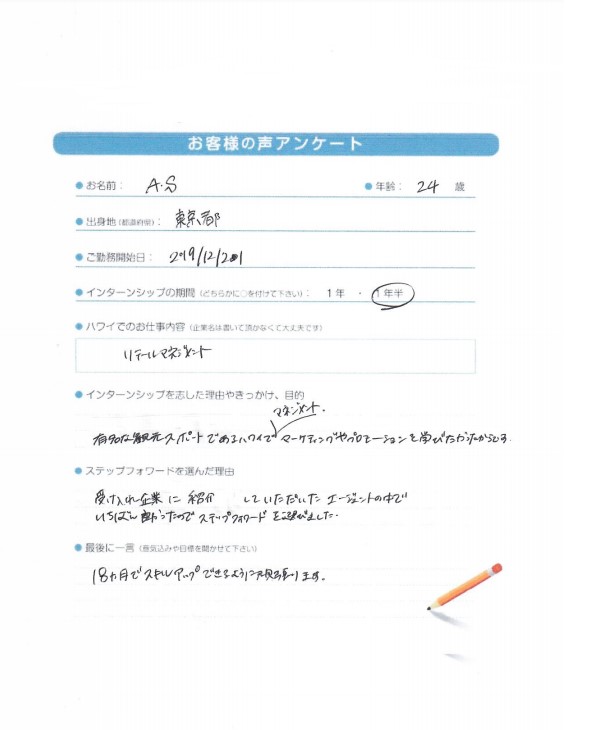 お客様の声アンケート
● お名前： A.S ● 年齢： 24 歳
● 出身地（都道府県）： 東京都
● ご勤務開始日： 2019/12/
● インターンシップの期間（どちらかに○を付けて下さい）： 1年 ・ 1年半
● ハワイでのお仕事内容（企業名は書いて頂かなくて大丈夫です）
リテールマネジメント
● インターンシップを志した理由やきっかけ、目的
マネジメント、
有名な観光スポットであるハワイでマーケティングやプロモーションを学びたかったからです
● ステップフォワードを選んだ理由
受け入れ企業に紹介していただいたエージェントの中で
いちばん良かったのでステップフォワードを選びました.
● 最後に一言（意気込みや目標を聞かせて下さい）
18ヵ月でスキルアップできるように頑張ります。